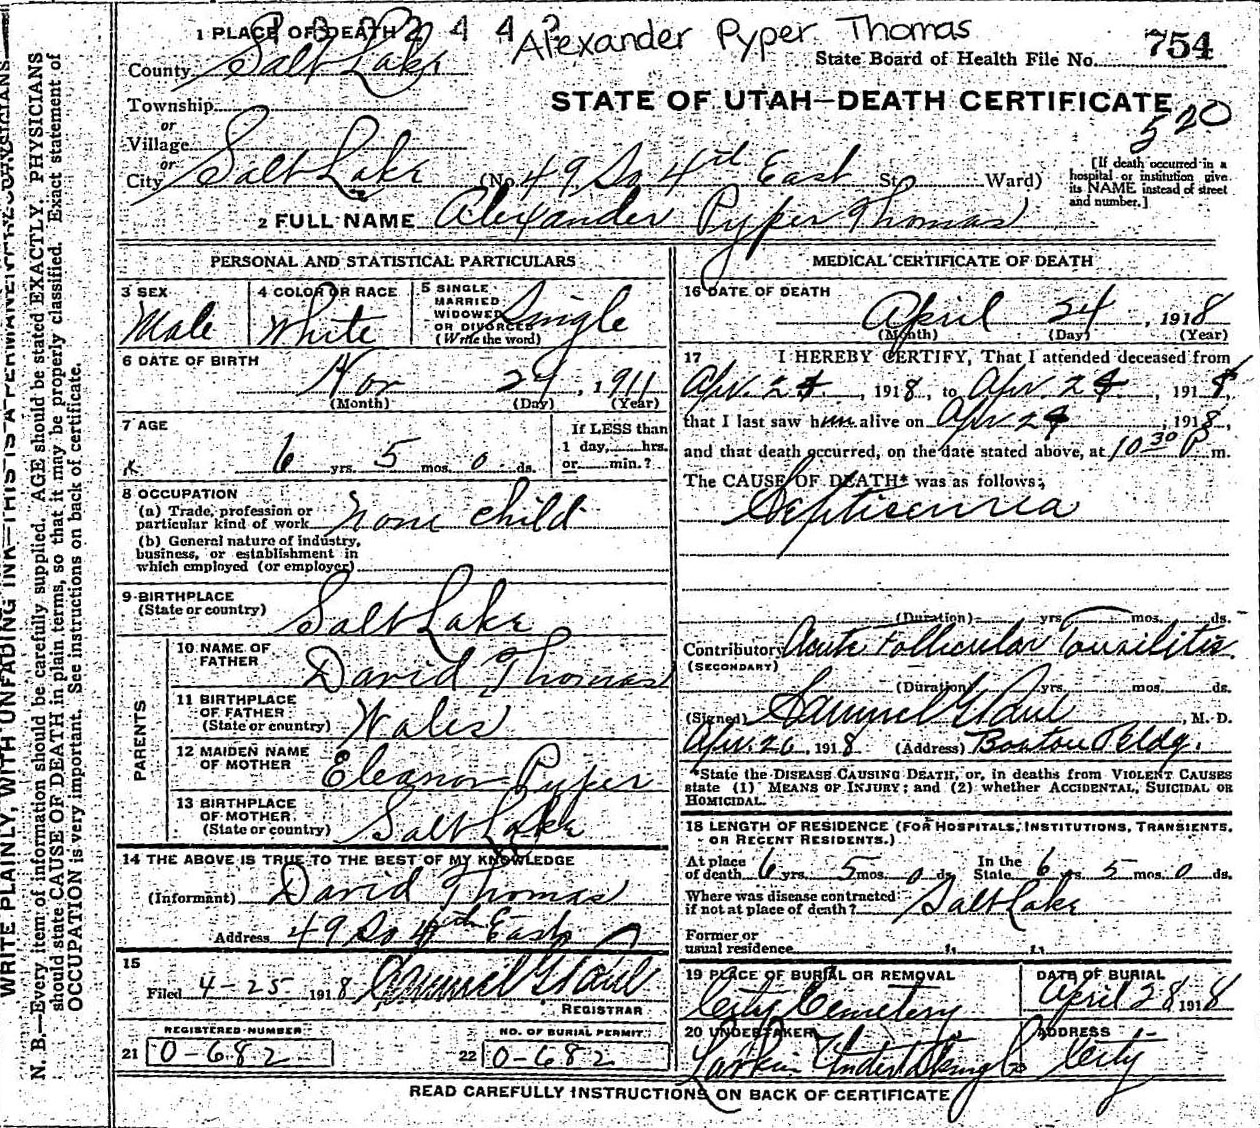 1 PLACE OF DEATH 2 4 4 2
Alexander Pyper Thomas
County Salt Lake
State Board of Health File No. 754
Township
STATE OF UTAH—DEATH CERTIFICATE
or
Village
520
or
City Salt Lake (No. 49 So 4th East St. Ward)
[If death occurred in a hospital or institution give its NAME instead of street and number.]
2 FULL NAME Alexander Pyper Thomas
PERSONAL AND STATISTICAL PARTICULARS
3 SEX Male
4 COLOR OR RACE White
5 SINGLE MARRIED WIDOWED OR DIVORCED (Write the word) Single
6 DATE OF BIRTH
Nov 24, 1911
(Month) (Day) (Year)
7 AGE
6 yrs. 5 mos. 0 ds.
If LESS than
1 day, hrs.
or min.?
8 OCCUPATION
(a) Trade, profession or
particular kind of work None child
(b) General nature of industry,
business, or establishment in
which employed (or employer)
9 BIRTHPLACE
(State or country) Salt Lake
PARENTS
10 NAME OF
FATHER David Thomas
11 BIRTHPLACE
OF FATHER
(State or country) Wales
12 MAIDEN NAME
OF MOTHER Eleanor Pyper
13 BIRTHPLACE
OF MOTHER
(State or country) Salt Lake
14 THE ABOVE IS TRUE TO THE BEST OF MY KNOWLEDGE
(Informant) David Thomas
Address 49 So 4th East
15
Filed 4-25 1918 Samuel G Paul
REGISTRAR
REGISTERED NUMBER
21 0-682
NO. OF BURIAL PERMIT
22 0-682
MEDICAL CERTIFICATE OF DEATH
16 DATE OF DEATH
April 24, 1918
(Month) (Day) (Year)
17 I HEREBY CERTIFY, That I attended deceased from
Apr. 24, 1918, to Apr. 24, 1918,
that I last saw him alive on Apr 24, 1918,
and that death occurred, on the date stated above, at 10 30 P m.
The CAUSE OF DEATH* was as follows:
Septicemia
(Duration) yrs. mos. ds.
Contributory Acute Follicular Tonsilitis.
(SECONDARY)
(Duration) yrs. mos. ds.
(Signed) Samuel G Paul, M. D.
Apr. 26, 1918 (Address) Boston Bldg.
*State the DISEASE CAUSING DEATH, or, in deaths from VIOLENT CAUSES
state (1) MEANS OF INJURY; and (2) whether ACCIDENTAL, SUICIDAL OR
HOMICIDAL.
18 LENGTH OF RESIDENCE (FOR HOSPITALS, INSTITUTIONS, TRANSIENTS,
OR RECENT RESIDENTS.)
At place of death 6 yrs. 5 mos. 0 ds. In the State 6 yrs. 5 mos. 0 ds.
Where was disease contracted
if not at place of death? Salt Lake
Former or
usual residence
19 PLACE OF BURIAL OR REMOVAL
City Cemetery
DATE OF BURIAL
April 28 1918
20 UNDERTAKER
Larkin Undertaking Co
ADDRESS
City
READ CAREFULLY INSTRUCTIONS ON BACK OF CERTIFICATE
WRITE PLAINLY, WITH UNFADING INK—THIS IS A PERMANENT RECORD
N. B.—Every item of information should be carefully supplied. AGE should be stated EXACTLY. PHYSICIANS
should state CAUSE OF DEATH in plain terms, so that it may be properly classified. Exact statement of
OCCUPATION is very important. See instructions on back of certificate.